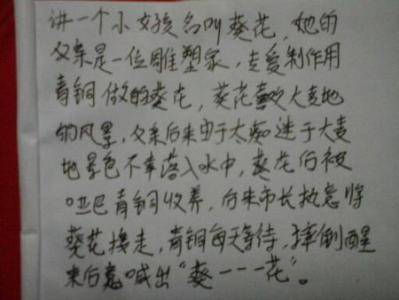 讲一个小女孩名叫葵花，她的
父亲是一位雕塑家，专爱制作用
青铜做的葵花，葵花喜欢大麦地
的风景，父亲后来由于太痴迷于大麦
地景色不幸落入水中，葵花后被
哑巴青铜收养，后来市长执意将
葵花接走，青铜每天等待，摔倒醒
来后竟喊出“葵一一一花”。